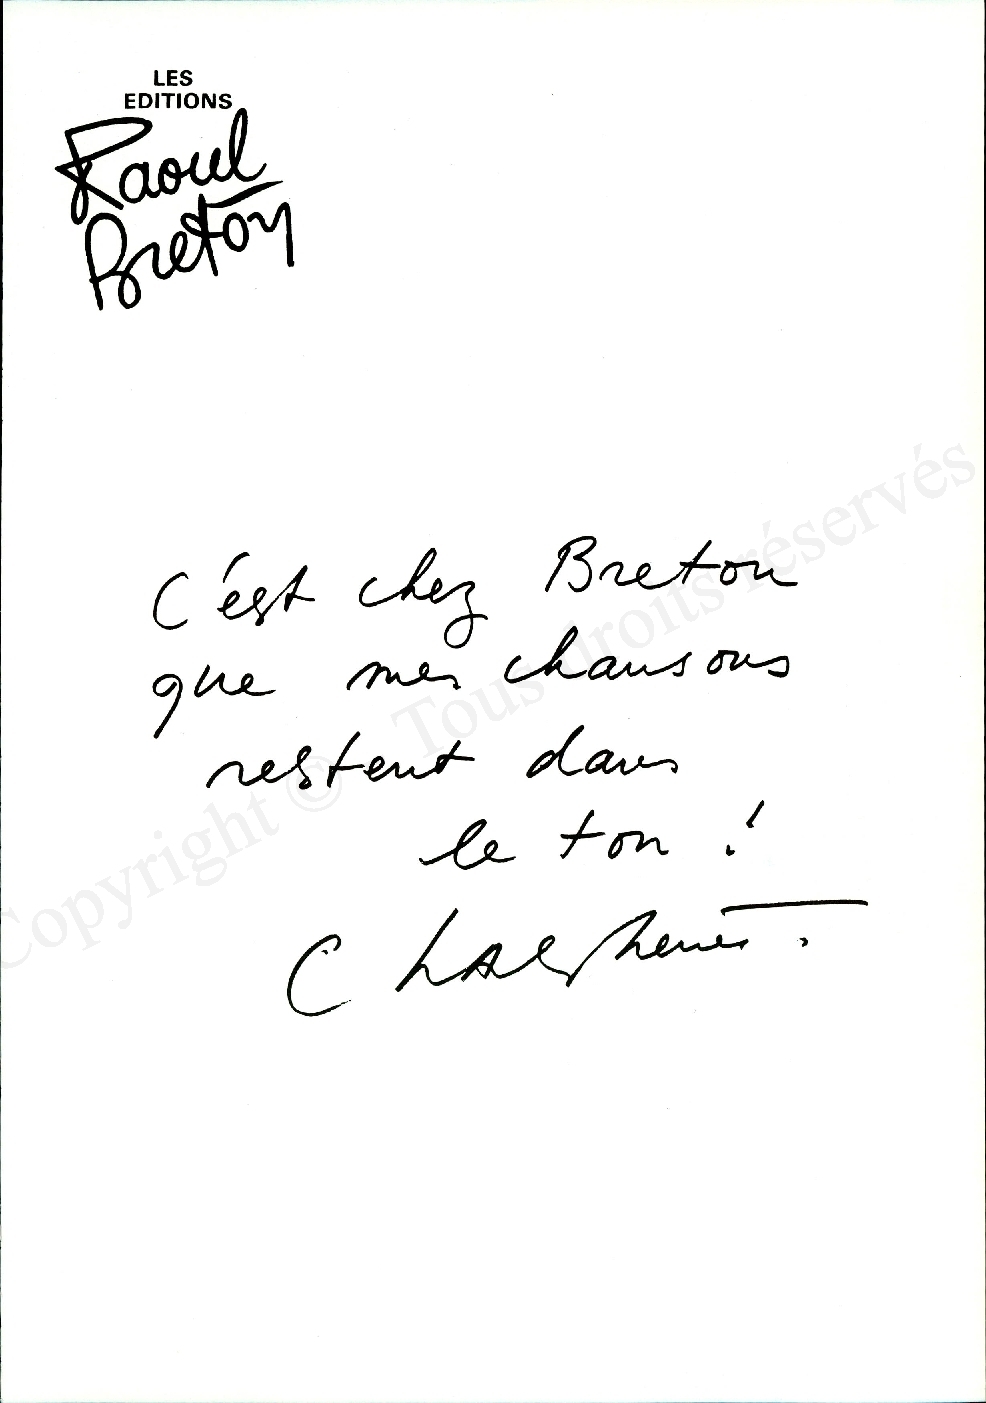 LES
EDITIONS
Raoul
Breton
C'est chez Breton
que mes chansons
restent dans
le ton !
C
Copyright © Tous droits réservés